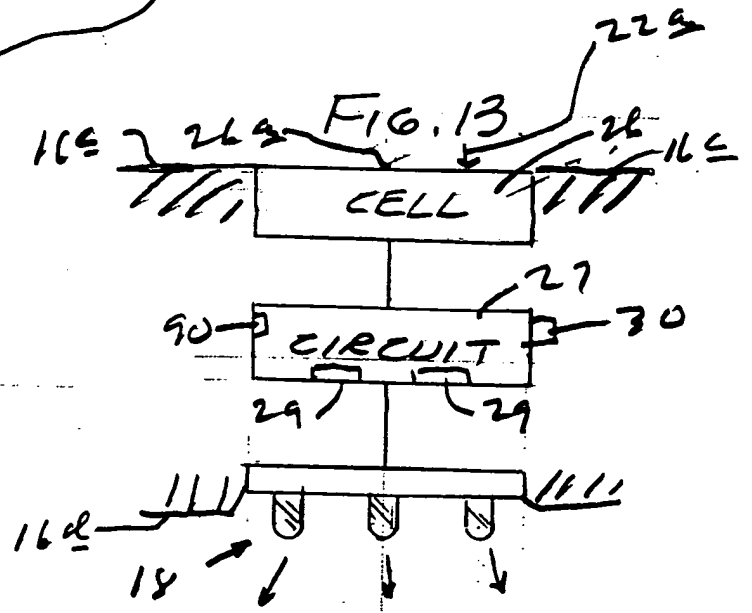 22a
FIG. 13
16c 26a 26 16c
CELL
27
90 CIRCUIT 30
29 29
16d
18